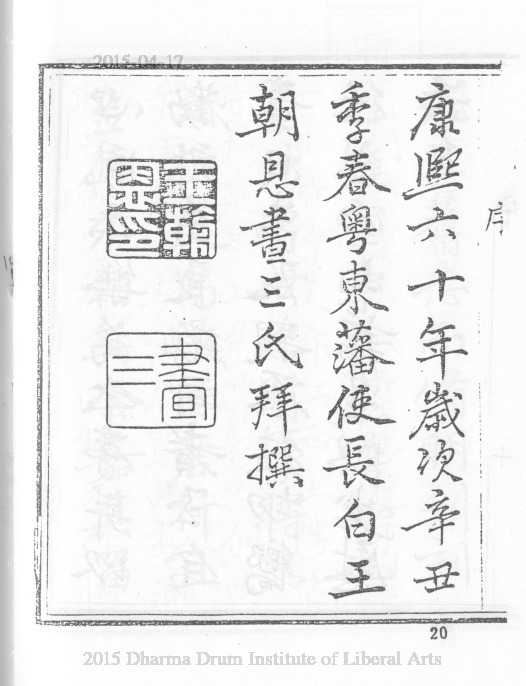 2015-04-17
序
康熙六十年歲次辛丑
季春粵東藩使長白王
朝恩晝三氏拜撰
王朝恩印
晝三
20
2015 Dharma Drum Institute of Liberal Arts